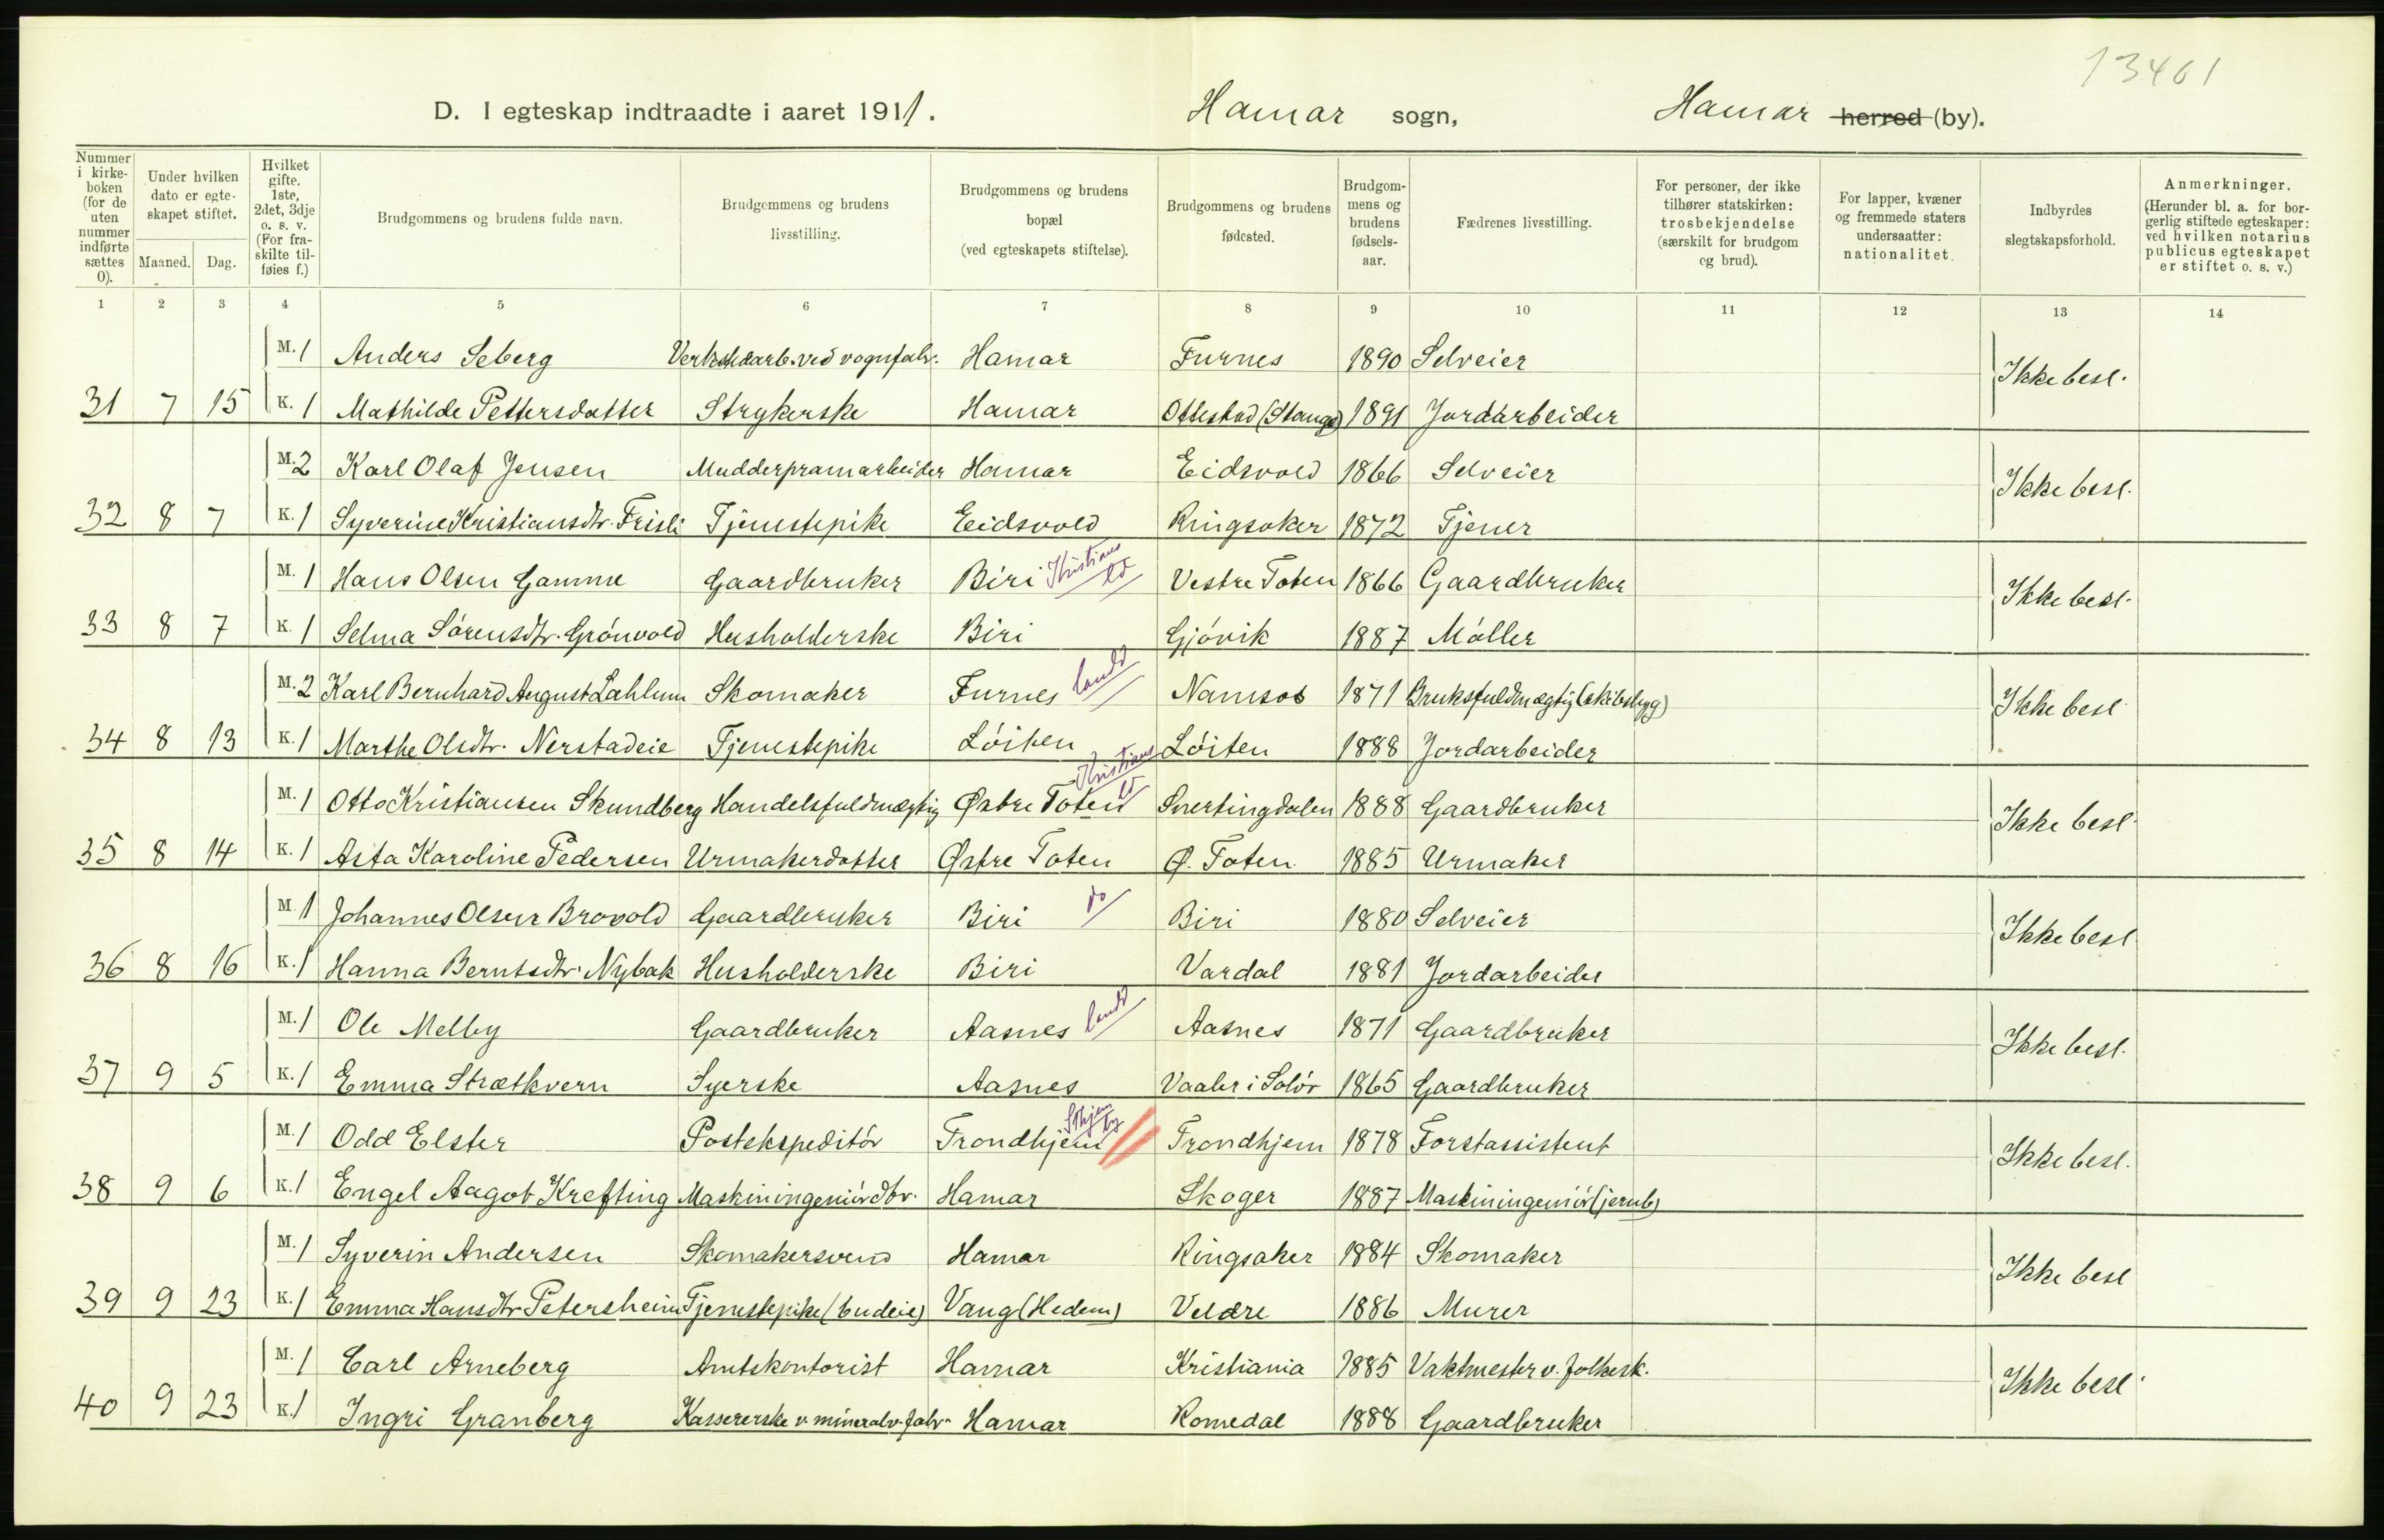 13461
D. I egteskap indtraadte i aaret 1911. Hamar sogn, Hamar herred (by).
Nummer i kirkeboken (for de uten nummer indførte sættes 0). Under hvilken dato er egteskapet stiftet. Maaned. Dag. Hvilket gifte. 1ste, 2det, 3dje o. s. v. (For fraskilte tilføies f.) Brudgommens og brudens fulde navn. Brudgommens og brudens livsstilling. Brudgommens og brudens bopæl (ved egteskapets stiftelse). Brudgommens og brudens fødested. Brudgommens og brudens fødselsaar. Fædrenes livsstilling. For personer, der ikke tilhører statskirken: trosbekjendelse (særskilt for brudgom og brud). For lapper, kvæner og fremmede staters undersaatter: nationalitet. Indbyrdes slegtskapsforhold. Anmerkninger. (Herunder bl. a. for borgerlig stiftede egteskaper: ved hvilken notarius publicus egteskapet er stiftet o. s. v.)
1 2 3 4 5 6 7 8 9 10 11 12 13 14
M. 1 Anders Seberg Verkstedarb. ved vognfabr. Hamar Furnes 1890 Selveier Ikke besl.
31 7 15 K. 1 Mathilde Pettersdatter Strykerske Hamar Ottestad (Stange) 1891 Jordarbeider
M. 2 Karl Olaf Jensen Mudderpramarbeider Hamar Eidsvold 1866 Selveier Ikke besl.
32 8 7 K. 1 Syverine Kristiansdtr. Frisli Tjenestepike Eidsvold Ringsaker 1872 Tjener
M. 1 Hans Olsen Gamme Gaardbruker Biri Kristians Vestre Toten 1866 Gaardbruker Ikke besl.
33 8 7 K. 1 Selma Sørensdtr. Grönvold Husholderske Biri Gjövik 1887 Möller
M. 2 Karl Bernhard August Lahlum Skomaker Furnes land Namsos 1871 Bruksfuldmægtig (skibsbyg) Ikke besl
34 8 13 K. 1 Marthe Olsdtr. Nerstadeie Tjenestepike Löiten Löiten 1888 Jordarbeider
M. 1 Otto Kristiansen Skundberg Handelsfuldmægtig Østre Toten Kristians Snertingdalen 1888 Gaardbruker Ikke besl.
35 8 14 K. 1 Asta Karoline Pedersen Urmakerdatter Østre Toten Ø. Toten 1885 Urmaker
M. 1 Johannes Olsen Brovold Gaardbruker Biri do Biri 1880 Selveier Ikke besl
36 8 16 K. 1 Hanna Berntsdtr. Nybak Husholderske Biri Vardal 1881 Jordarbeider
M. 1 Ole Melby Gaardbruker Aasnes land Aasnes 1871 Gaardbruker Ikke besl.
37 9 5 K. 1 Emma Strætkvern Syerske Aasnes Vaaler i Solör 1865 Gaardbruker
M. 1 Odd Elster Postekspeditör Trondhjem by Trondhjem 1878 Forstassistent Ikke besl.
38 9 6 K. 1 Engel Aagot Krefting Maskiningeniördtr. Hamar Skoger 1887 Maskiningeniör (jernb)
M. 1 Syverin Andersen Skomakersvend Hamar Ringsaker 1884 Skomaker Ikke besl
39 9 23 K. 1 Emma Hansdtr Petersheim Tjenestepike (budeie) Vang (Hedem) Veldre 1886 Murer
M. 1 Carl Arneberg Amtskontorist Hamar Kristiania 1885 Vaktmester v. folkesk. Ikke besl.
40 9 23 K. 1 Ingri Granberg Kassererske v. mineralv. fabr. Hamar Romedal 1888 Gaardbruker